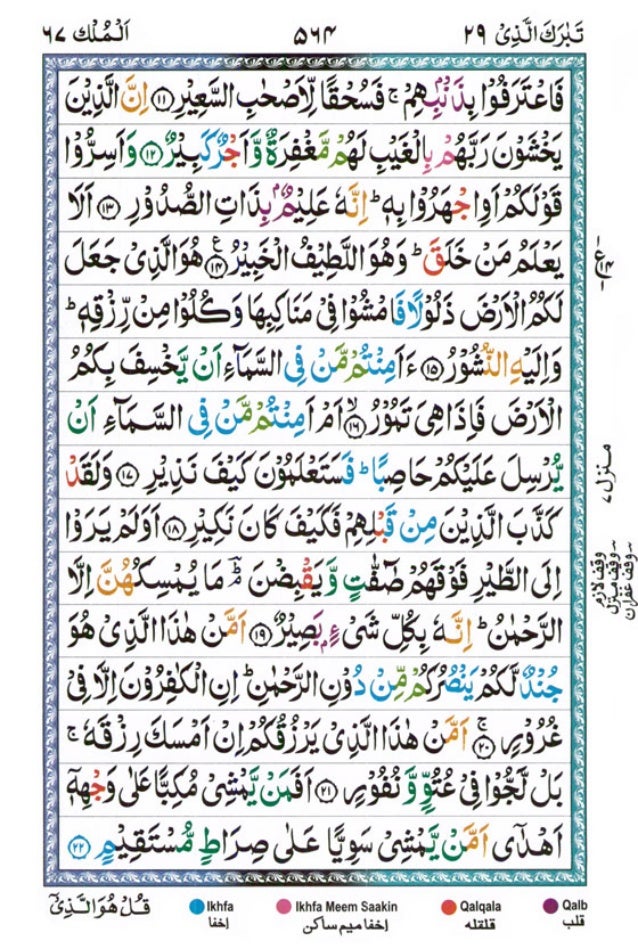 تَبٰرَكَ الَّذِیْ ٢٩
٥٦٤
اَلْمُلْك ٦٧
فَاعْتَرَفُوْا بِذَنْۢبِهِمْ ۚ فَسُحْقًا لِّاَصْحٰبِ السَّعِیْرِ ١١ اِنَّ الَّذِیْنَ
یَخْشَوْنَ رَبَّهُمْ بِالْغَیْبِ لَهُمْ مَّغْفِرَةٌ وَّاَجْرٌ كَبِیْرٌ ١٢ وَاَسِرُّوْا
قَوْلَكُمْ اَوِاجْهَرُوْا بِهٖ ؕ اِنَّهٗ عَلِیْمٌۢ بِذَاتِ الصُّدُوْرِ ١٣ اَلَا
یَعْلَمُ مَنْ خَلَقَ ؕ وَهُوَ اللَّطِیْفُ الْخَبِیْرُ ١٤ هُوَالَّذِیْ جَعَلَ
لَكُمُ الْاَرْضَ ذَلُوْلًا فَامْشُوْا فِیْ مَنَاكِبِهَا وَكُلُوْا مِنْ رِّزْقِهٖ ؕ
وَاِلَیْهِ النُّشُوْرُ ١٥ ءَاَمِنْتُمْ مَّنْ فِی السَّمَآءِ اَنْ یَّخْسِفَ بِكُمُ
الْاَرْضَ فَاِذَا هِیَ تَمُوْرُ ١٦ اَمْ اَمِنْتُمْ مَّنْ فِی السَّمَآءِ اَنْ
یُّرْسِلَ عَلَیْكُمْ حَاصِبًا ؕ فَسَتَعْلَمُوْنَ كَیْفَ نَذِیْرِ ١٧ وَلَقَدْ
كَذَّبَ الَّذِیْنَ مِنْ قَبْلِهِمْ فَكَیْفَ كَانَ نَكِیْرِ ١٨ اَوَلَمْ یَرَوْا
اِلَی الطَّیْرِ فَوْقَهُمْ صٰٓفّٰتٍ وَّیَقْبِضْنَ ؔۘ مَا یُمْسِكُهُنَّ اِلَّا
الرَّحْمٰنُ ؕ اِنَّهٗ بِكُلِّ شَیْءٍۭ بَصِیْرٌ ١٩ اَمَّنْ هٰذَا الَّذِیْ هُوَ
جُنْدٌ لَّكُمْ یَنْصُرُكُمْ مِّنْ دُوْنِ الرَّحْمٰنِ ؕ اِنِ الْكٰفِرُوْنَ اِلَّا فِیْ
غُرُوْرٍ ۚ ٢٠ اَمَّنْ هٰذَا الَّذِیْ یَرْزُقُكُمْ اِنْ اَمْسَكَ رِزْقَهٗ ۚ
بَلْ لَّجُّوْا فِیْ عُتُوٍّ وَّنُفُوْرٍ ٢١ اَفَمَنْ یَّمْشِیْ مُكِبًّا عَلٰی وَجْهِهٖۤ
اَهْدٰۤی اَمَّنْ یَّمْشِیْ سَوِیًّا عَلٰی صِرَاطٍ مُّسْتَقِیْمٍ ٢٢
ع ١٤
منزل ٧
وقف لازم
وقف منزل
وقف غفران
قُلْ هُوَالَّذِیْۤ
Ikhfa
إخفا
Ikhfa Meem Saakin
إخفا ميم ساكن
Qalqala
قلقله
Qalb
قلب